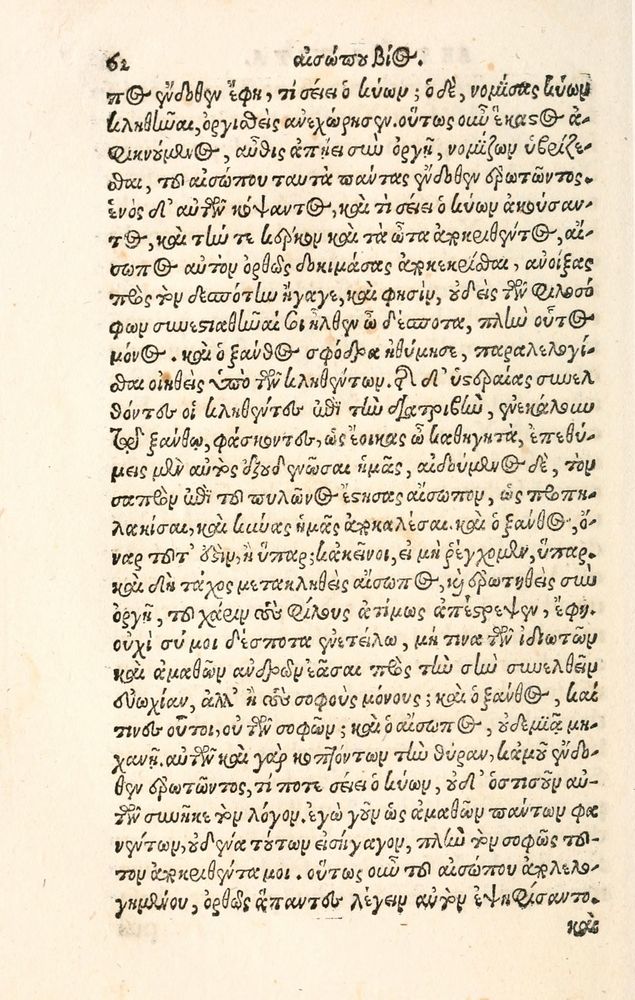 62 αἰσώπου βίος.
πος ἔνδοθεν ἔφη, τί σείει ὁ κύων; ὁ δὲ, νομίσας κύων
κληθῆναι, ὀργισθεὶς ἀνεχώρησεν. οὕτως οὖν ἕκαστος ἀ-
φικνούμενος, αὖθις ἀπῄει σὺν ὀργῇ, νομίζων ὑβρίζε-
σθαι, τοῦ αἰσώπου ταυτὰ πάντας ἔνδοθεν ἐρωτῶντος.
ἑνὸς δ' αὐτῶν κόψαντος, καὶ τί σείει ὁ κύων ἀκούσαν-
τος, καὶ τήν τε κέρκον καὶ τὰ ὦτα ἀποκριθέντος, αἴ-
σωπος αὐτὸν ὀρθῶς δοκιμάσας ἀποκεκρίσθαι, ἀνοίξας
πρὸς τὸν δεσπότην ἤγαγε, καὶ φησὶν, οὐδεὶς τῶν φιλοσό
φων συνεστιαθῆναί σοι ἦλθεν ὦ δέσποτα, πλὴν οὗτος
μόνος. καὶ ὁ ξάνθος σφόδρα ἠθύμησε, παραλελογί-
σθαι οἰηθεὶς ὑπὸ τῶν κληθέντων. τῇ δ' ὑστεραίας συνελ
θόντες οἱ κληθέντες ἐπὶ τὴν διατριβὴν, ἐνεκάλουν
τῷ ξάνθῳ, φάσκοντες, ὡς ἔοικας ὦ καθηγητὰ, ἐπεθύ-
μεις μὲν αὐτὸς ἐξουδενῶσαι ἡμᾶς, αἰδούμενος δὲ, τὸν
σαπρὸν ἐπὶ τοῦ πυλῶνος ἔστησας αἴσωπον, ὡς προπη-
λακίσαι, καὶ κύνας ἡμᾶς ἀποκαλέσαι. καὶ ὁ ξάνθος, ὄ-
ναρ τοῦτ' ἐστιν, ἢ ὕπαρ; κἀκεῖνοι, εἰ μὴ ῥέγχομεν, ὕπαρ.
καὶ δὴ τάχος μετακληθεὶς αἴσωπος, καὶ ἐρωτηθεὶς σὺν
ὀργῇ, τοῦ χάριν τοὺς φίλους ἀτίμως ἀπέστρεψεν, ἔφη.
οὐχὶ σύ μοι δέσποτα ἐνετείλω, μή τινα τῶν ἰδιωτῶν
καὶ ἀμαθῶν ἀνδρῶν ἐᾶσαι πρὸς τὴν σὴν συνελθεῖν
εὐωχίαν, ἀλλ' ἢ τοὺς σοφοὺς μόνους; καὶ ὁ ξάνθος, καὶ
τίνες οὗτοι, οὐ τῶν σοφῶν; καὶ ὁ αἴσωπος, οὐδεμιᾷ μη-
χανῇ. αὐτῶν καὶ γὰρ κοπτόντων τὴν θύραν, κἀμοῦ ἔνδο-
θεν ἐρωτῶντος, τί ποτε σείει ὁ κύων, οὐδ' ὁστισοῦν αὐ-
τῶν συνῆκε τὸν λόγον. ἐγὼ γοῦν ὡς ἀμαθῶν πάντων φα
νέντων, οὐδένα τούτων εἰσήγαγον, πλὴν τὸν σοφῶς τοῦ-
τον ἀποκριθέντα μοι. οὕτως οὖν τοῦ αἰσώπου ἀπολελο-
γημένου, ὀρθῶς ἅπαντες λέγειν αὐτὸν ἐψηφίσαντο.
καὶ